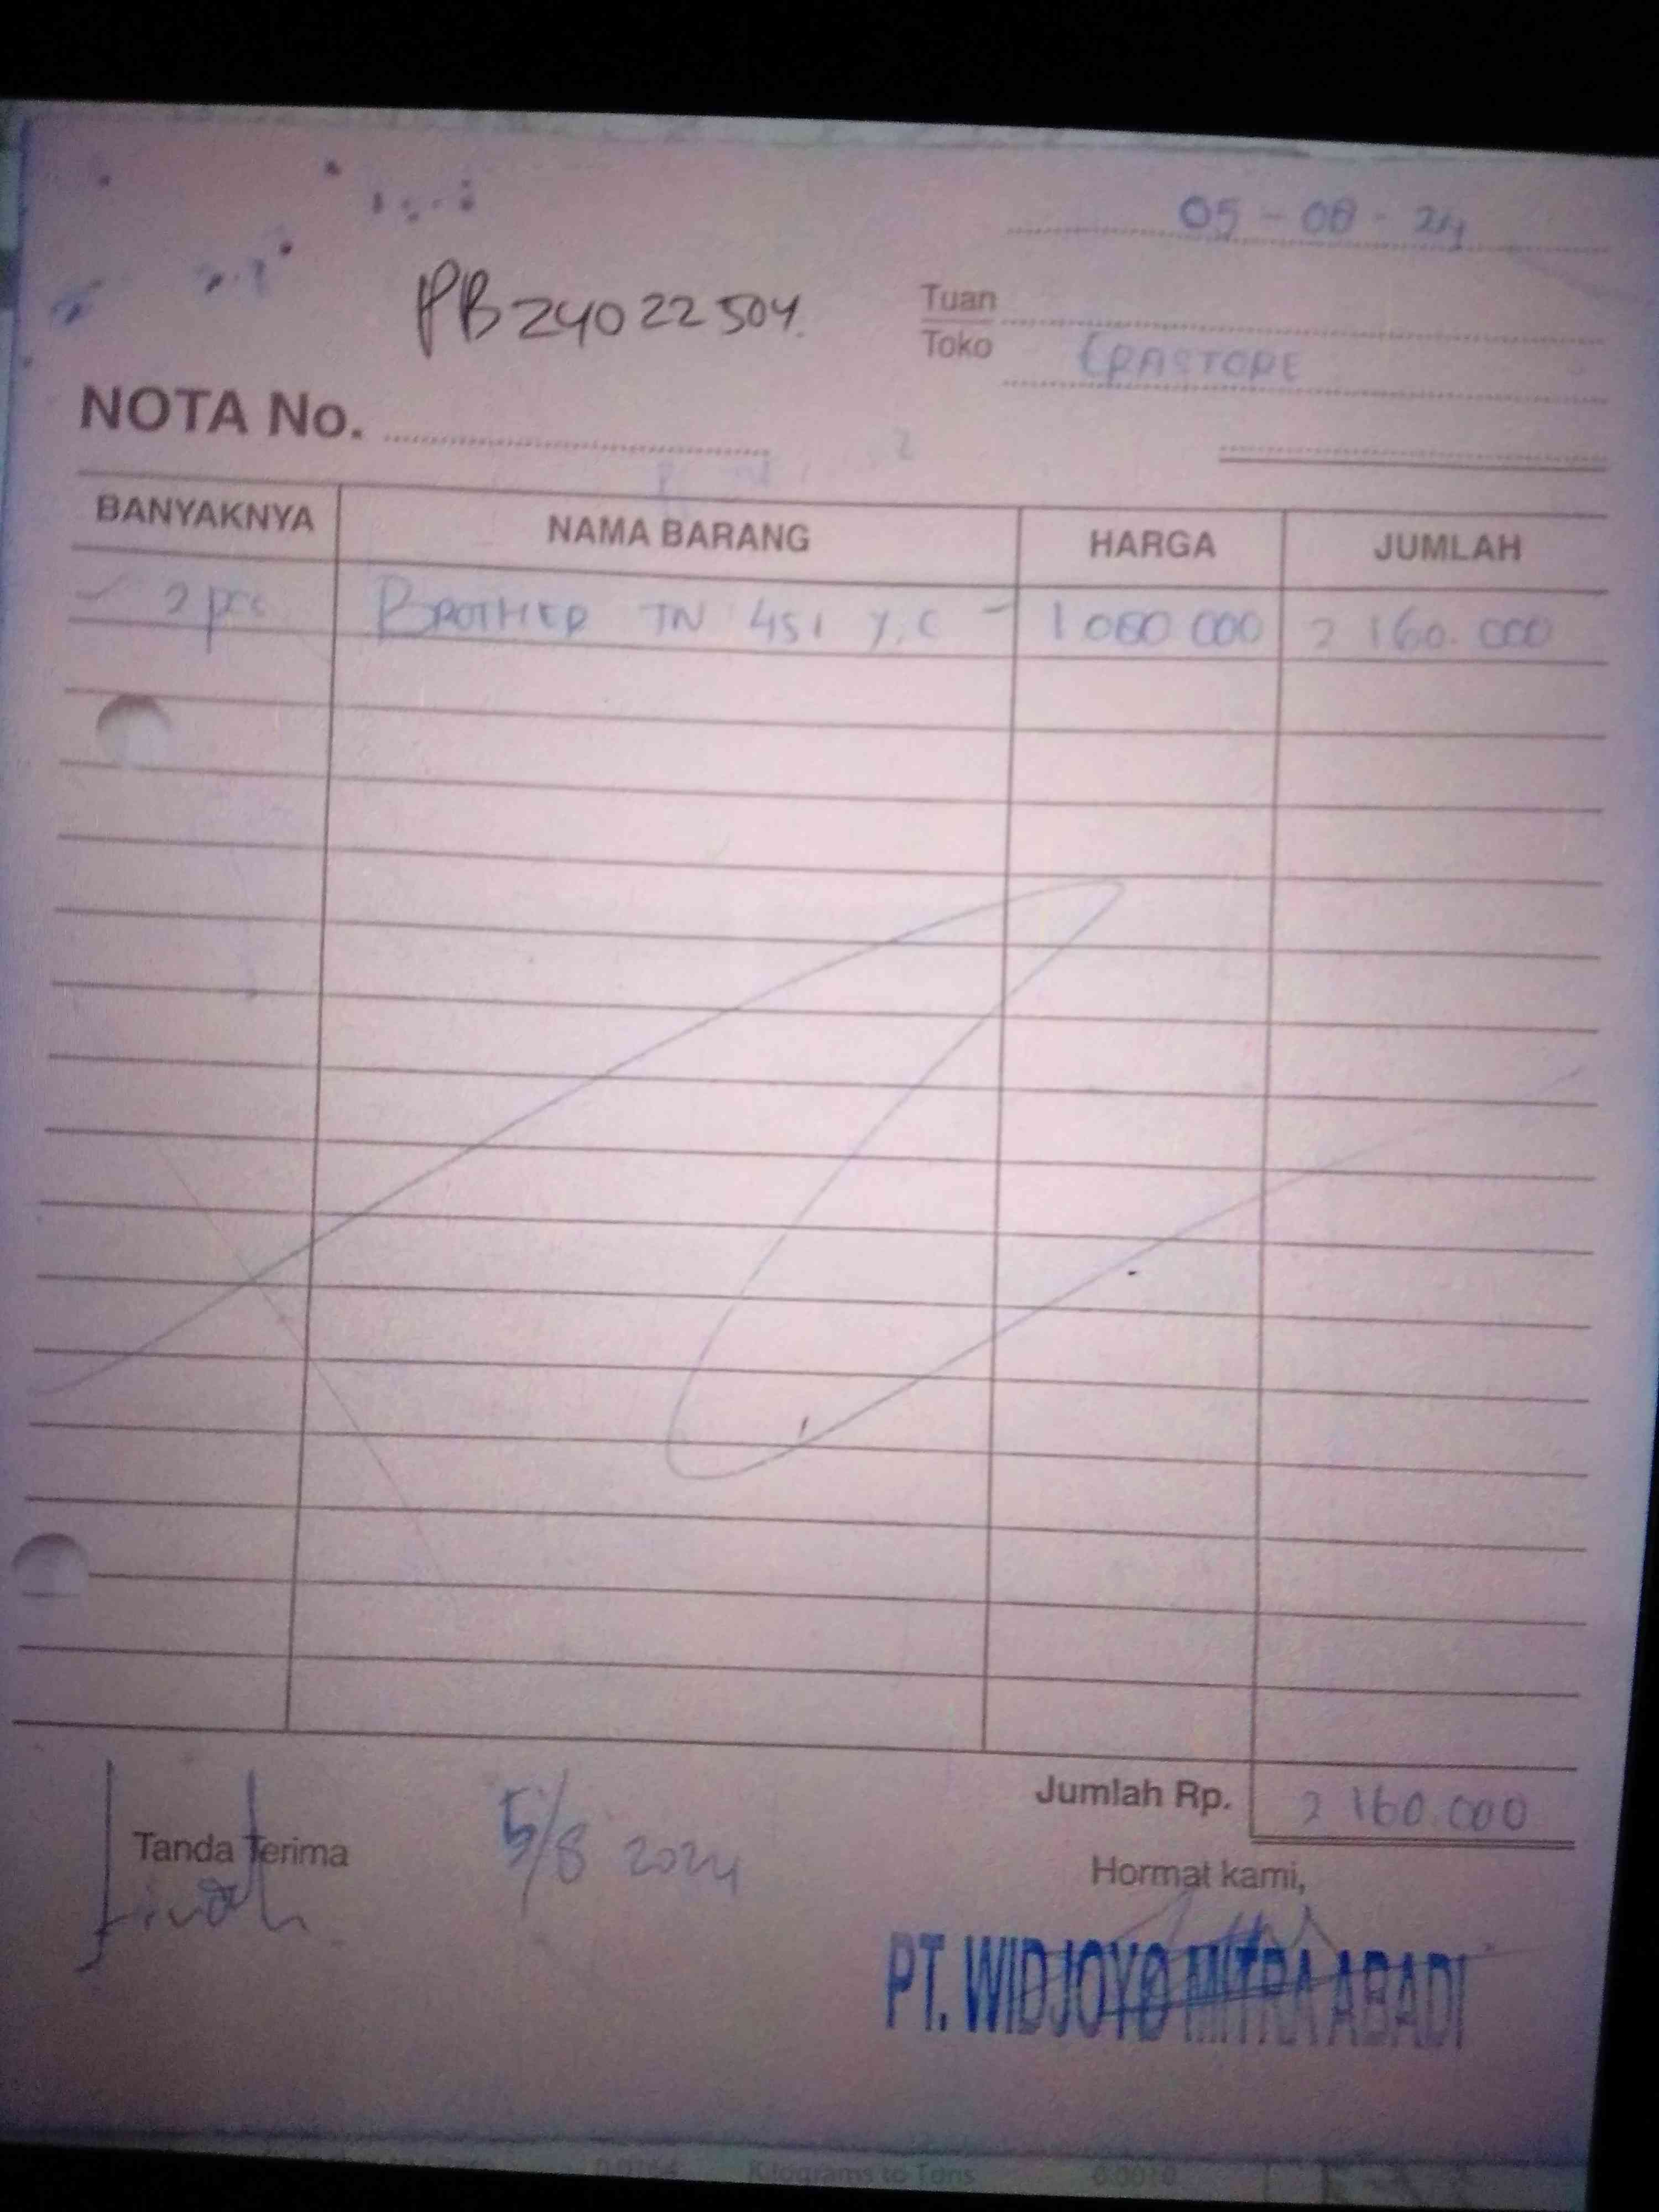 05-08-24
PB24022504.
Tuan
Toko ERASTORE
NOTA No.
BANYAKNYA NAMA BARANG HARGA JUMLAH
2 pcs BROTHER TN 451 Y, C 1 080 000 2 160.000
Jumlah Rp. 2 160.000
Tanda Terima 5/8 2024
Hormat kami,
PT. WIDJOYO MITRA ABADI
Kilograms to Tons